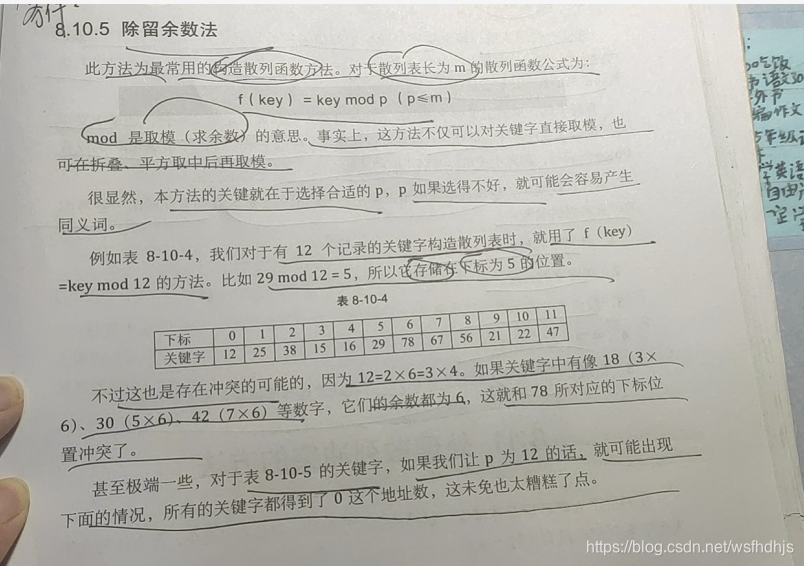 8.10.5 除留余数法
此方法为最常用的构造散列函数方法。对于散列表长为 m 的散列函数公式为：
f ( key ) = key mod p ( p≤m )
mod 是取模（求余数）的意思。事实上，这方法不仅可以对关键字直接取模，也
可在折叠、平方取中后再取模。
很显然，本方法的关键就在于选择合适的 p，p 如果选得不好，就可能会容易产生
同义词。
例如表 8-10-4，我们对于有 12 个记录的关键字构造散列表时，就用了 f（key）
=key mod 12 的方法。比如 29 mod 12 = 5，所以它存储在下标为 5 的位置。
表 8-10-4
下标 0 1 2 3 4 5 6 7 8 9 10 11
关键字 12 25 38 15 16 29 78 67 56 21 22 47
不过这也是存在冲突的可能的，因为 12=2×6=3×4。如果关键字中有像 18（3×
6）、30（5×6）、42（7×6）等数字，它们的余数都为 6，这就和 78 所对应的下标位
置冲突了。
甚至极端一些，对于表 8-10-5 的关键字，如果我们让 p 为 12 的话，就可能出现
下面的情况，所有的关键字都得到了 0 这个地址数，这未免也太糟糕了点。
吃饭
外书
作文
年级
学英语
自由
https://blog.csdn.net/wsfhdhjs